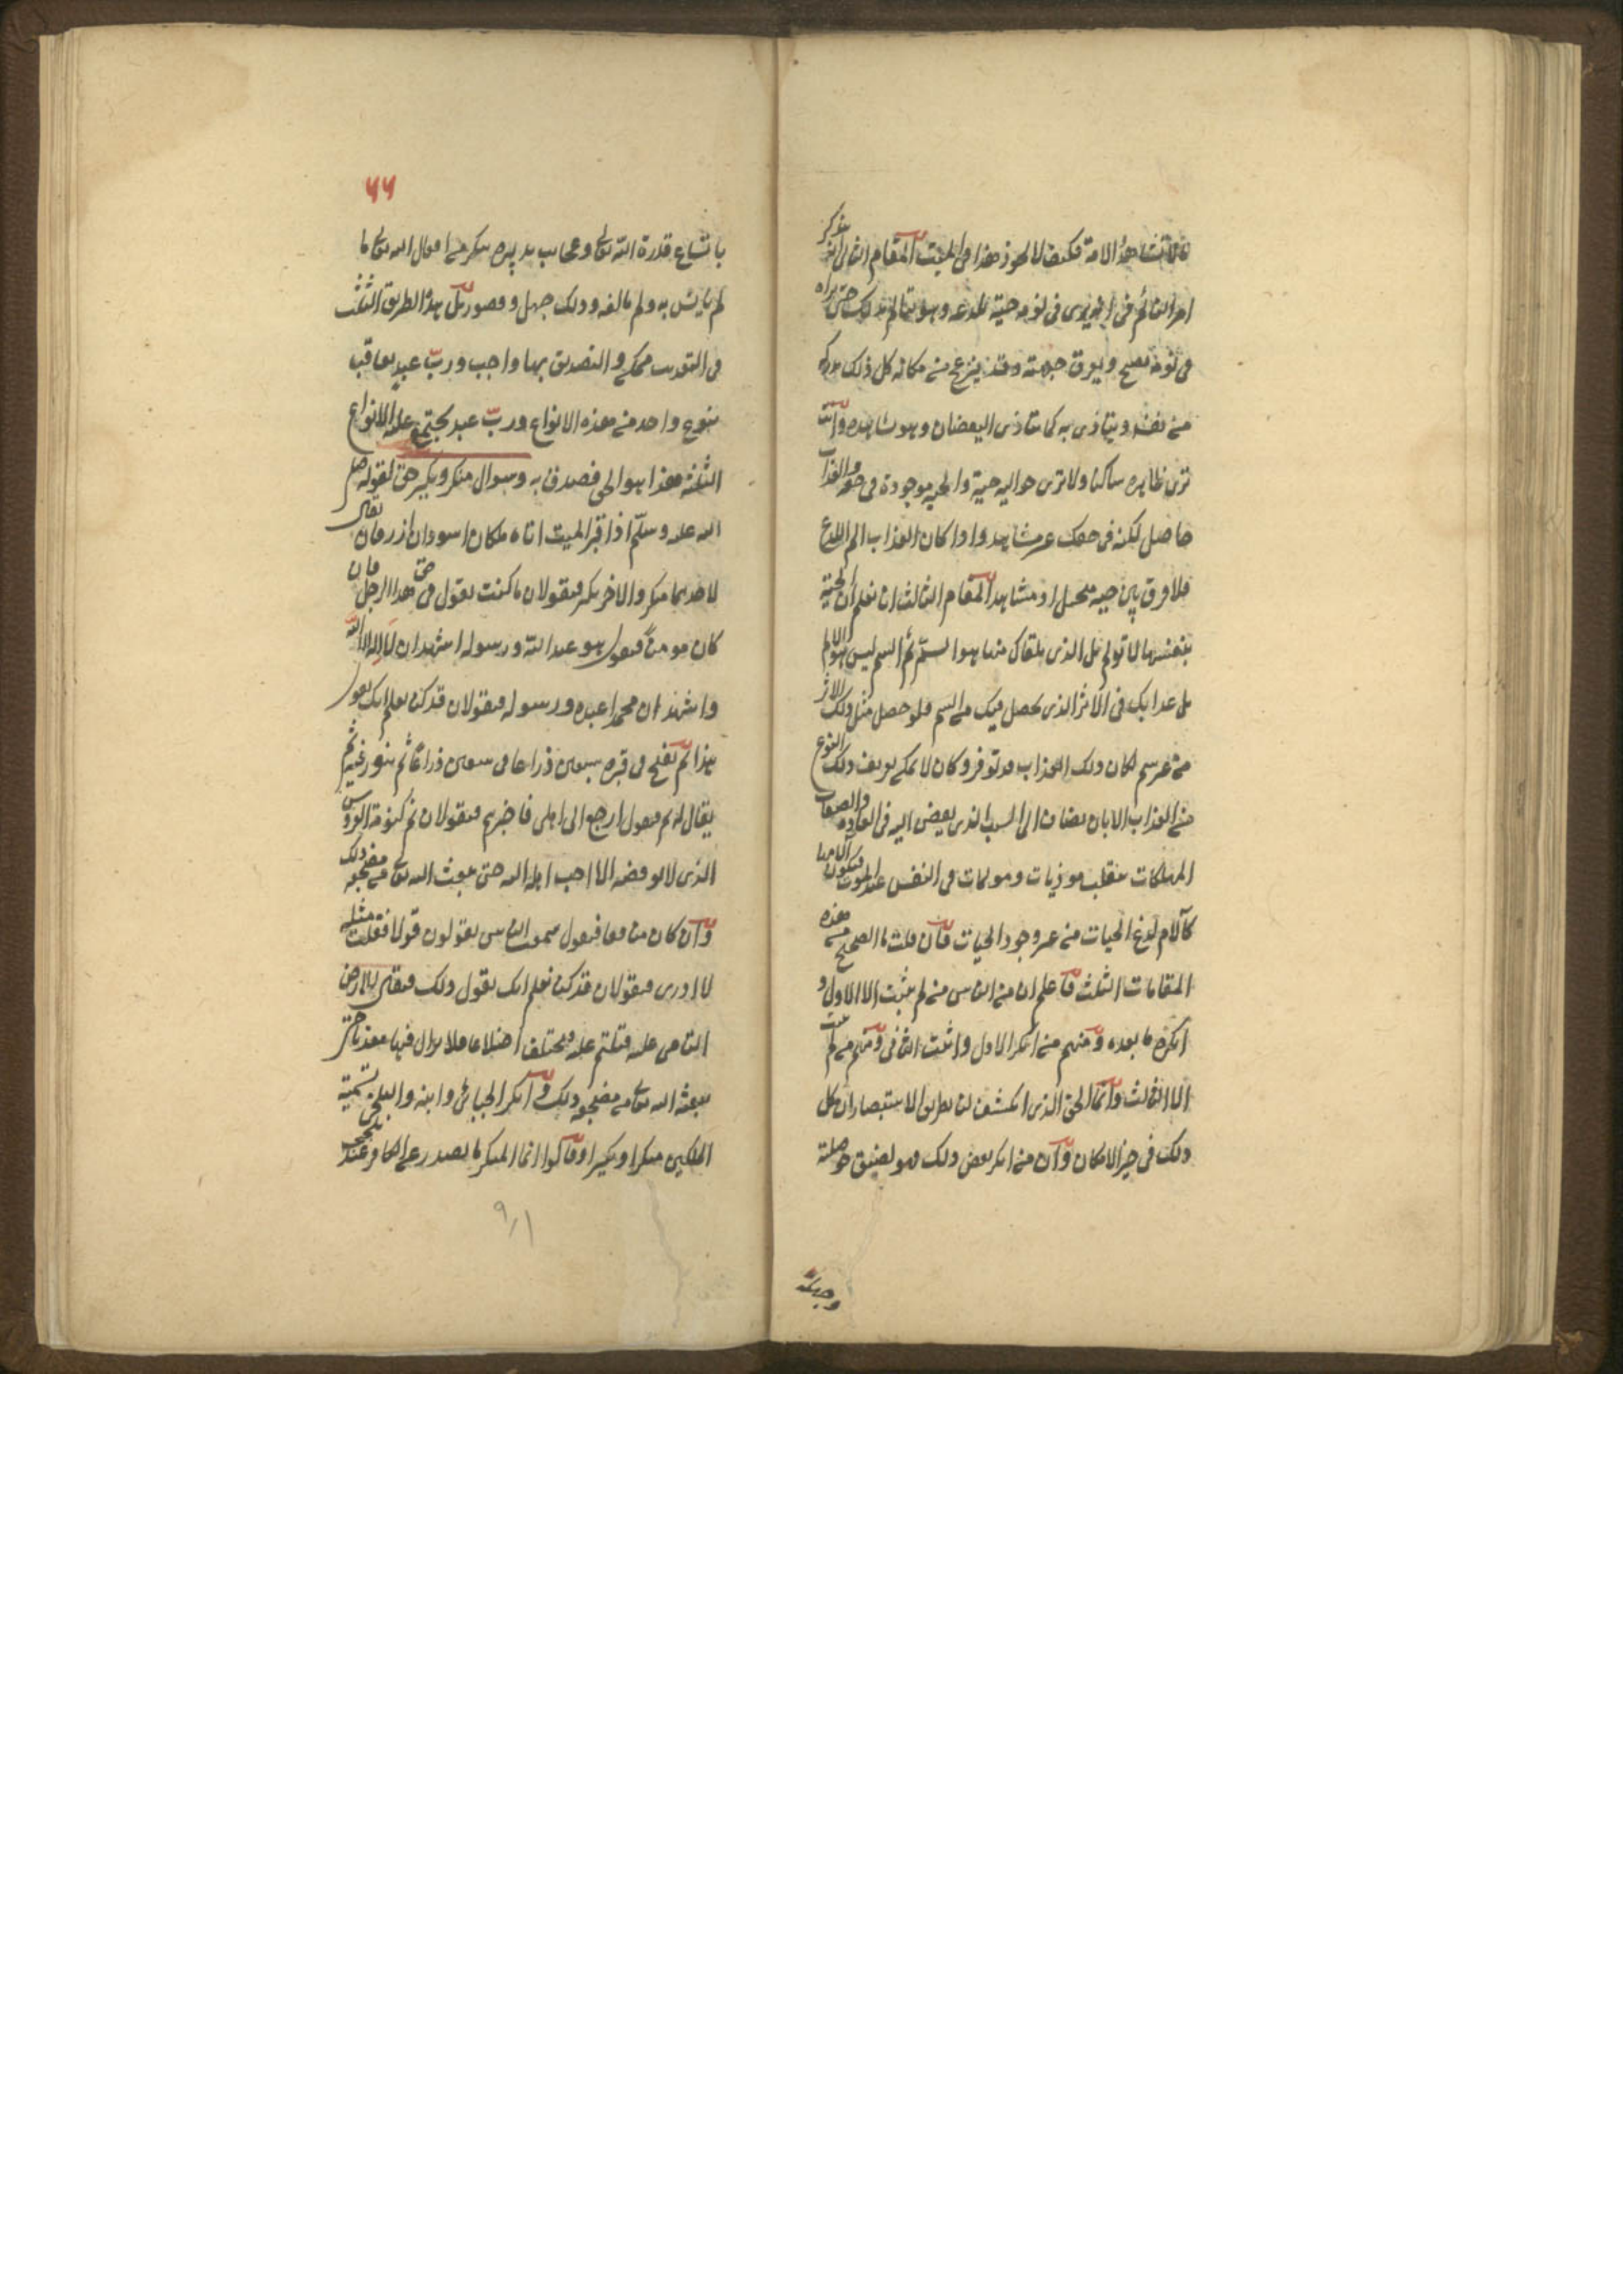 مالا تشاهده الامة فكيف لا يجوز هذا فى الميت المقام الثانى ان تتذكر
امر النائم فى انه يرى فى نومه حية تلدغه وهو يتالم بذلك حتى يراه
فى نومه يصيح ويعرق جبهته وقد ينزعج من مكانه كل ذلك يدركه
من نفسه ويتاذى به كما يتاذى اليقضان وهو يشاهده وانت
ترى ظاهره ساكنا ولا ترى حواليه حية والحية موجودة فى حقه والعذاب
حاصل لكنه فى حقك غير مشاهد واذا كان العذاب الم اللدغ
فلا فرق بين حية تتخيل او تشاهد المقام الثالث ان تعلم ان الحية
بنفسها لا تولم بل الذى يلقاك منها هو السم ثم السم ليس هو الالم
بل عذابك فى الاثر الذى يحصل فيك من السم فلو حصل مثل ذلك الاثر
من غير سم لكان ذلك العذاب قد توفر وكان لا يمكن تعريف ذلك النوع
من العذاب الا بان يضاف الى السبب الذى يفضى اليه فى العادة والصفات
المهلكات تنقلب موذيات ومولمات فى النفس عند الموت فيكون آلامها
كآلام لدغ الحيات من غير وجود الحيات فان قلت ما الصحيح من هذه
المقامات الثلث فاعلم ان من الناس من لم يثبت الا الاول و
انكر ما بعده ومنهم من انكر الاول واثبت الثانى ومنهم من لم يثبت
الا الثالث وانما الحق الذى انكشف لنا بطريق الاستبصار ان كل
ذلك فى حيز الامكان وان من انكر بعض ذلك فهو لضيق حوصلته
وجهله
٦٦
باتساع قدرة الله تعالى وعجايب تدبيره ينكر من افعال الله تعالى ما
لم يانس به ولم يالفه وذلك جهل وقصور بل هذه الطرق الثلث
فى التعذيب ممكن والتصديق بها واجب ورب عبد يعاقب
بنوع واحد من هذه الانواع ورب عبد يجتمع عليه الانواع
الثلثة هذا هو الحق فصدق به وسوال منكر ونكير حق لقوله صلى
الله عليه وسلم اذا قبر الميت اتاه ملكان اسودان ازرقان يقال
لاحدهما منكر والاخر نكير فيقولان ما كنت تقول فى حق هذا الرجل فان
كان مومنا فيقول هو عبد الله ورسوله اشهد ان لا اله الا الله
واشهد ان محمدا عبده ورسوله فيقولان قد كنا نعلم انك تقول
هذا ثم يفسح فى قبره سبعين ذراعا فى سبعين ذراعا ثم ينور فيه ثم
يقال له نم فيقول ارجع الى اهلى فاخبرهم فيقولان نم كنومة العروس
الذى لا يوقضه الا احب اهله اليه حتى يبعث الله تعالى من مضجعه ذلك
وان كان منافقا فيقول سمعت الناس يقولون قولا فقلت مثله
لا ادرى فيقولان قد كنا نعلم انك تقول ذلك فيقال للارض
التامى عليه فتلتئم عليه فتختلف اضلاعه فلا يزال فيها معذبا حتى
يبعثه الله تعالى من مضجعه ذلك وانكر الجبائى وابنه والبلخى تسمية
الملكين منكرا ونكيرا وقالوا انما المنكر ما يصدر عن الكافر عند تلجلجه
٩/١